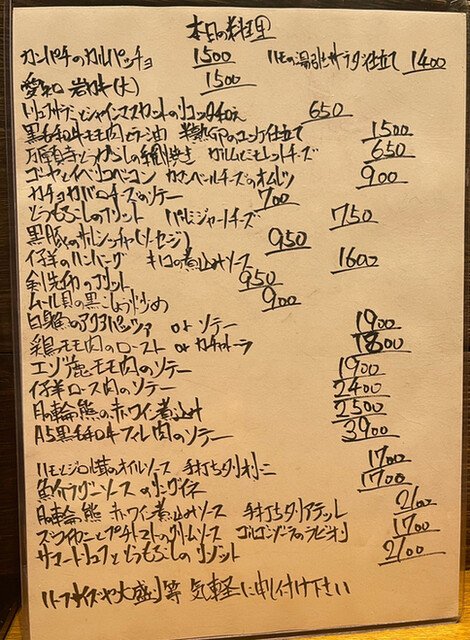 本日の料理
カンパチのカルパッチョ 1500 ハモの湯引きサラダ仕立て 1400
愛知 岩牡蠣(大) 1500
トリュフサラミとシャインマスカットのリコッタ和え 650
黒毛和牛モモ肉 半熟 仕立て 1500
万願寺とうがらしの網焼き チーズ 650
ゴーヤとイベリコベーコン カマンベールチーズのオムレツ 900
カチョカバロチーズのソテー 700
とうもろこしのフリット パルミジャーノチーズ 750
黒豚のサルシッチャ(ソーセージ) 950
仔羊のハンバーグ キノコの煮込みソース 1600
剣先イカのフリット 950
ムール貝の黒こしょう炒め 900
白身魚のアクアパッツァ or ソテー 1900
鶏モモ肉のロースト or カチャトーラ 1800
エゾ鹿モモ肉のソテー 1900
仔羊ロース肉のソテー 2400
月の輪熊の赤ワイン煮込み 2500
A5黒毛和牛フィレ肉のソテー 3900
ハモとジロール茸のオイルソース 手打ちタリオリーニ 1700
魚介ラグーソースのリングイネ 1700
月の輪熊 赤ワイン煮込みソース 手打ちタリアテッレ 2100
ズワイカニとプチトマトのクリームソース ゴルゴンゾーラのラビオリ 1700
サマートリュフととうもろこしのリゾット 2100
ハーフサイズや大盛り等 気軽に申し付け下さい